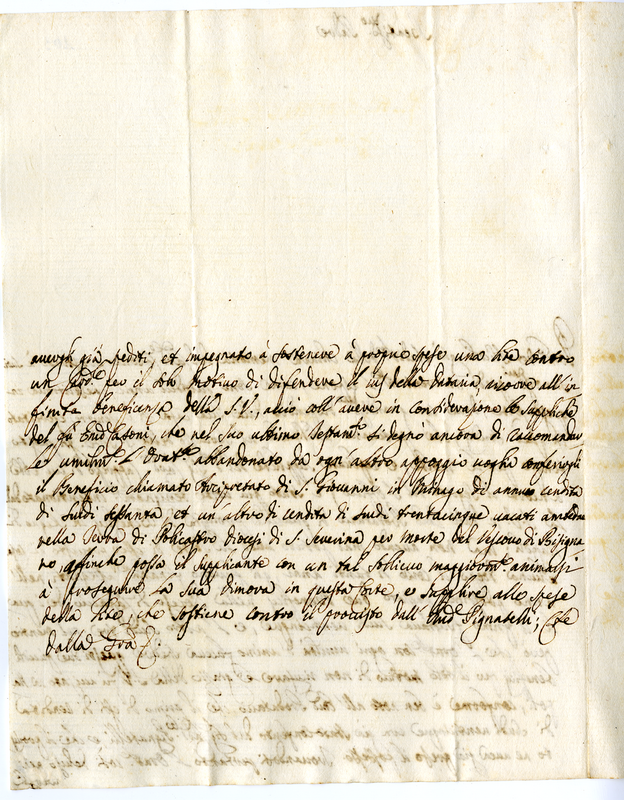 avergli già spediti, et impegnato à sostenere à proprie spese una lite contro
un Prõ.re per il solo motivo di difendere il ius della Dataria, ricorre all'in
finita beneficenza della S.V., acciò coll'avere in considerazione le suppliche
del fù, che nel suo ultimo Testam.to si degnò ancora di raccomandar
Le umilm.te l'Orat.re abbandonato da ogn'altro appoggio voglia conferirgli
il Beneficio chiamato Arcipretato di S. Giovanni in Monaco di annua rendita
di scudi settanta, et un altro di rendita di scudi trentacinque vacati ambedue
nella Terra di Policastro diocesi di S. Severina per morte del Vescovo di Bisigna
no, affinche possa il supplicante con un tal sollievo maggiorm.te animarsi
à proseguire la sua dimora in questa Corte, e supplire alle spese
della lite, che sostiene contro il provvisto dall' Pignatelli; Che
dalla Gra. &c.